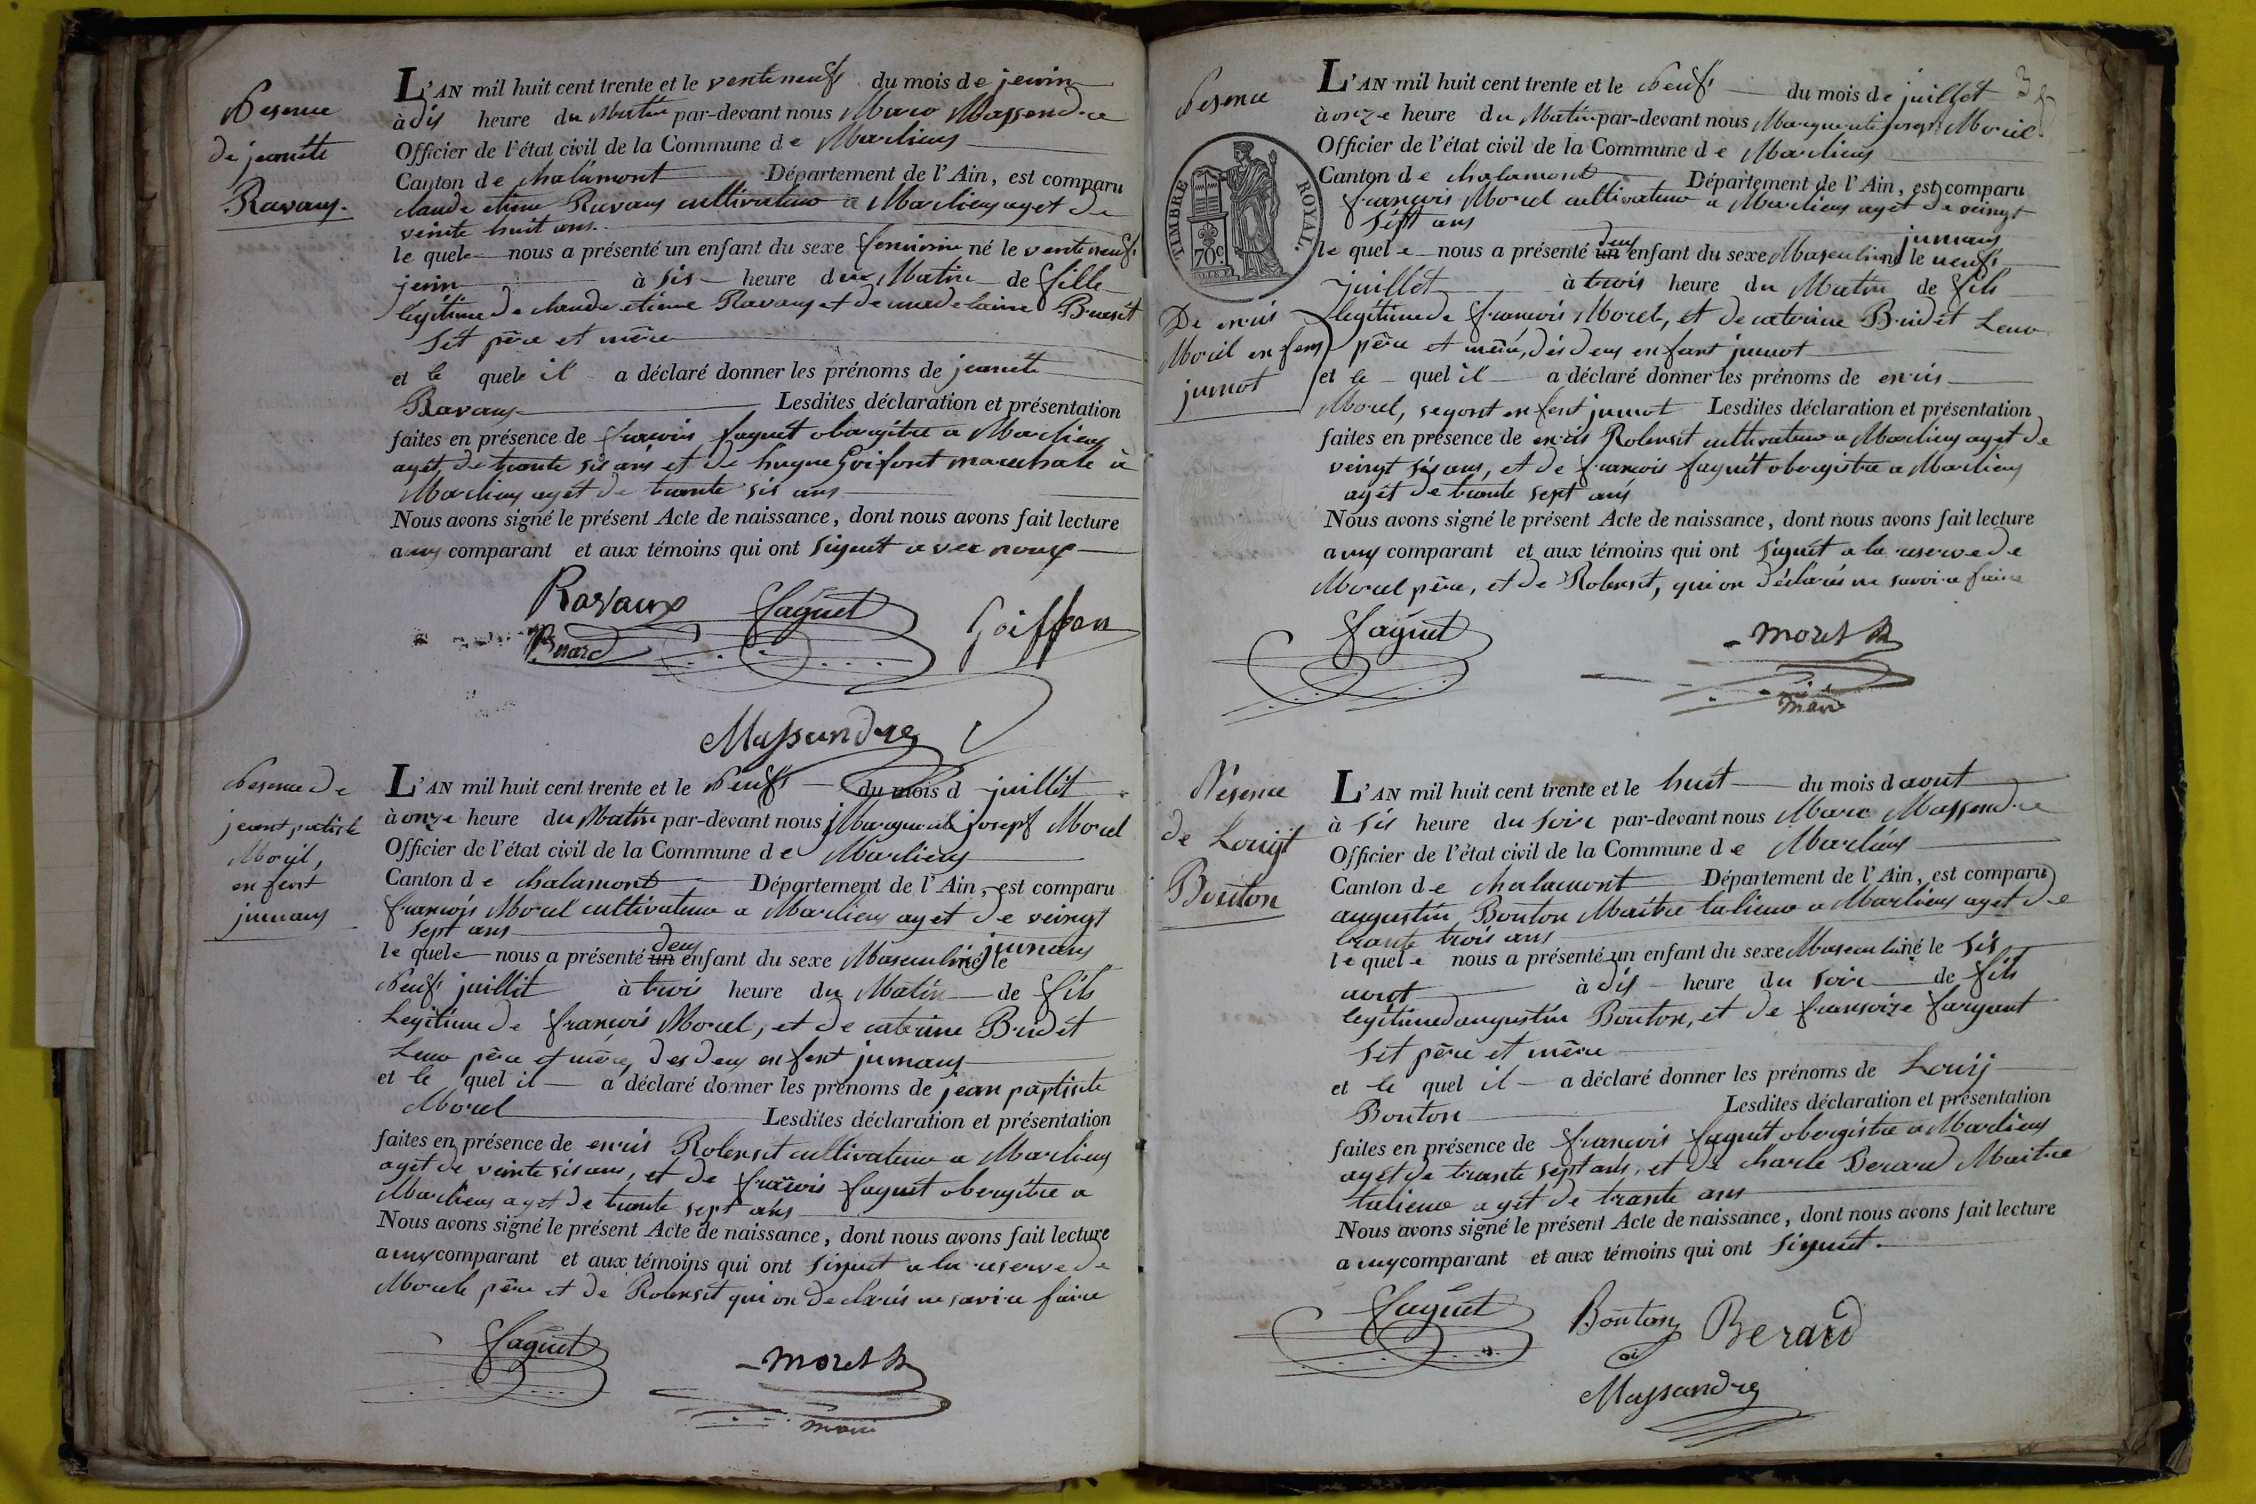 Desence
de jeanète
Ravaux.
L'AN mil huit cent trente et le venteneufs du mois de jeuin
à dis heure du Matin par-devant nous Marc Massendre
Officier de l'état civil de la Commune de Marlieux
Canton de chalamont Département de l'Ain, est comparu
claude etiene Ravaux cultivateur a Marlieux aget de
veinte huit ans.
le quele nous a présenté un enfant du sexe feminin né le venteneufs
jeuin à sis heure dux Matin de fille
legitime de claude etienne Ravaux et de madelaine
set père et mère
et le quele il a déclaré donner les prénoms de jeanete
Ravaux Lesdites déclaration et présentation
faites en présence de francois faguet obergitre a Marlieux
aget, de trante sis ans et de hugue Goifont marechale à
Marlieux aget de trante sis ans
Nous avons signé le présent Acte de naissance, dont nous avons fait lecture
a comparant et aux témoins qui ont signet avec nous
Ravaux faguet Goiffon
Massandre
Desence de
Morel,
enfent
jumaux
L'AN mil huit cent trente et le Neufs du mois d juillit
à onze heure du Matin par-devant nous Marguerite josepf Morel
Officier de l'état civil de la Commune de Marlieux
Canton de chalamont Département de l'Ain, est comparu
francois Morel cultivateur a Marlieux aget de veingt
sept ans
le quele nous a présenté un deux enfant du sexe Masculin né le jumaux
Neufs juillit à trois heure du Matin de fils
Legitime de francois Morel, et de caterine Bridet
Leur père et mère, des deux enfent jumaux
et le quel il a déclaré donner les prénoms de jean paptiste
Morel Lesdites déclaration et présentation
faites en présence de enris Robensit cultivateur a Marlieux
aget de veinte sis ans, et de francois faguet obergitre a
Marlieux aget de trante sept ans
Nous avons signé le présent Acte de naissance, dont nous avons fait lecture
a comparant et aux témoins qui ont signet a la reserve de
Morele père et de Robensit qui on declarés ne savire faire
faguet morel
maire
Desence
TIMBRE ROYAL.
70c.
De enris
Morel enfens
jumot
L'AN mil huit cent trente et le Neufs du mois de juillet
à onze heure du Matin par-devant nous Marguerite josepf Morel
Officier de l'état civil de la Commune de Marlieux
Canton de chalamont Département de l'Ain, est comparu
francois Morel cultivateur a Marlieux aget de veingt
sept ans
le quele nous a présenté un deux enfant du sexe Masculin né le neufs jumaux
juillet à trois heure du Matin de fils
legitime de francois Morel, et de caterine Bridet Leur
père et mère, des deux enfant jumot
et le quel il a déclaré donner les prénoms de enris
Morel, segont enfent jumot Lesdites déclaration et présentation
faites en présence de enris Robensit cultivateur a Marlieux aget de
veingt sis ans, et de francois faguet obergistre a Marlieux
aget de trante sept ans
Nous avons signé le présent Acte de naissance, dont nous avons fait lecture
a comparant et aux témoins qui ont signet a la reserve de
Morel père, et de Robensit, qui on déclarés ne savoire faire
faguet morel
maire
Nésence
de Louij
Bouton
L'AN mil huit cent trente et le huit du mois d aout
à sis heure du soire par-devant nous Marc Massendre
Officier de l'état civil de la Commune de Marlieux
Canton de chalamont Département de l'Ain, est comparu
augustin Bouton Maitre talieur a Marlieux aget de
trante trois ans
le quele nous a présenté un enfant du sexe Masculin né le sis
aout à dis heure du soire de fils
legitime daugustin Bouton, et de fransoize fargeant
set père et mère
et le quel il a déclaré donner les prénoms de Louij
Bouton Lesdites déclaration et présentation
faites en présence de francois faguet obergistre a Marlieux
aget de trante sept ans, et de charle Berard Maitre
talieur aget de trante ans
Nous avons signé le présent Acte de naissance, dont nous avons fait lecture
a comparant et aux témoins qui ont signet.
faguet Bouton Berard
Massandre